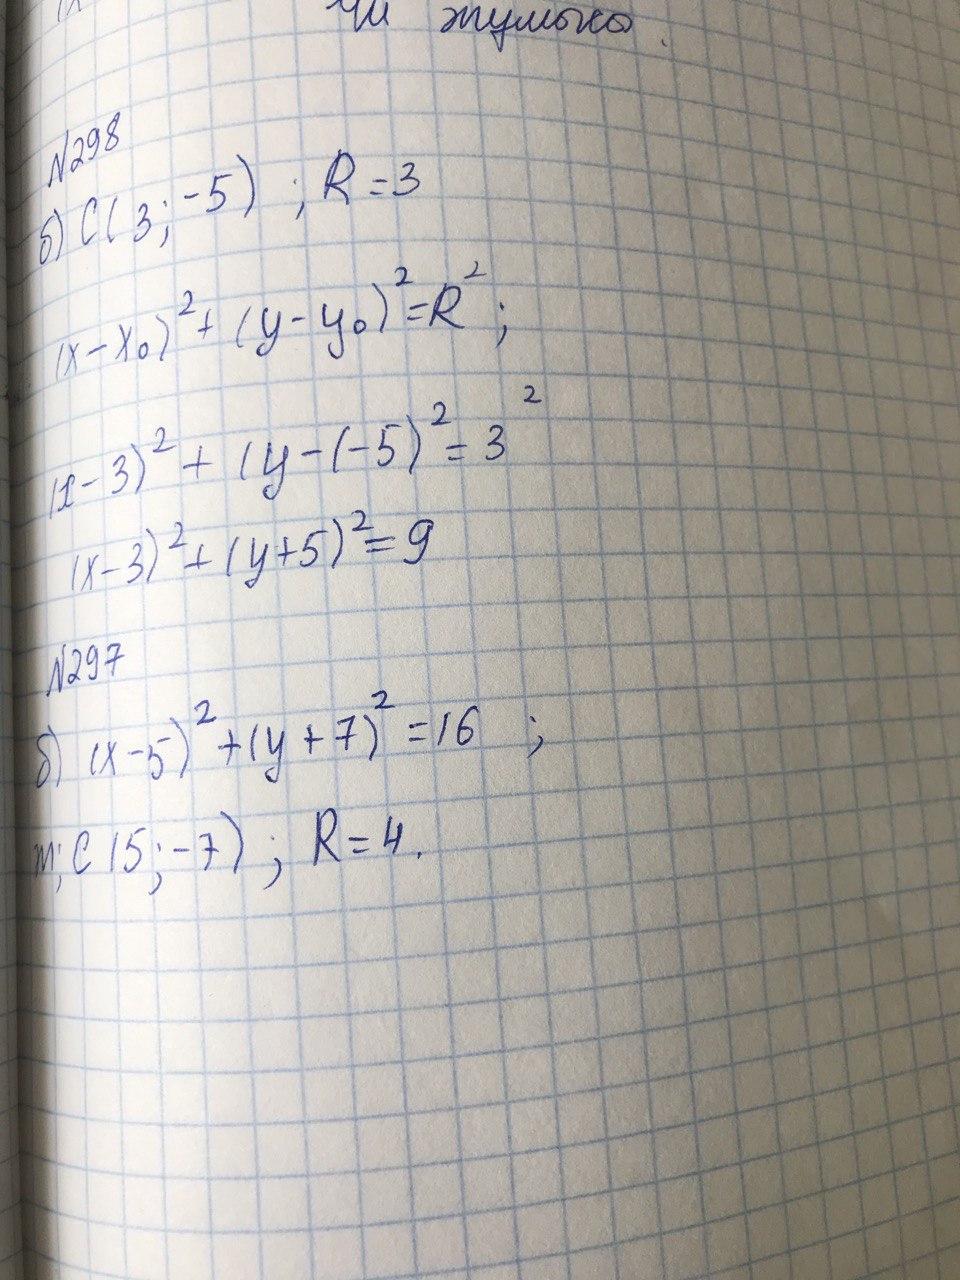 N298
б) C(3; -5) ; R = 3
(x - x₀)² + (y - y₀)² = R² ;
(x - 3)² + (y - (-5)² = 3²
(x - 3)² + (y + 5)² = 9
N297
б) (x - 5)² + (y + 7)² = 16 ;
т; C (5; -7) ; R = 4.